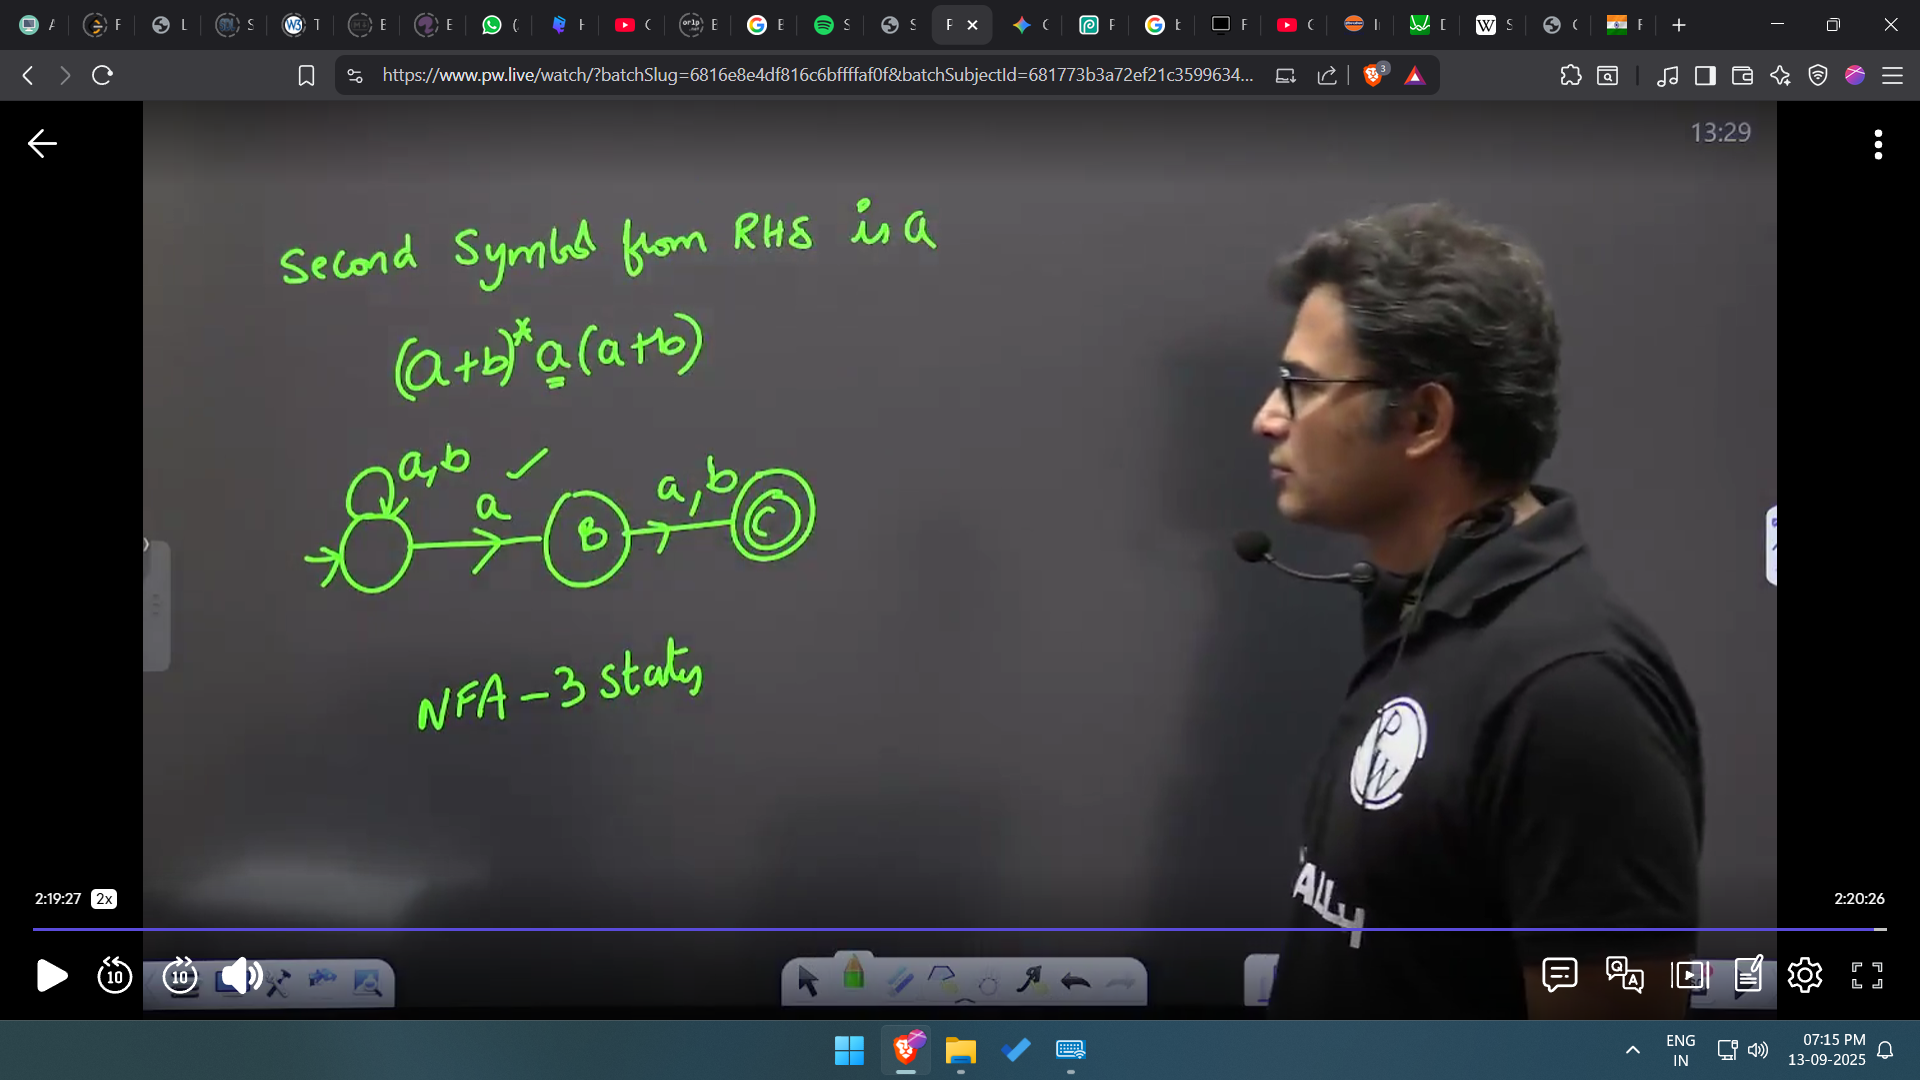 https://www.pw.live/watch/?batchSlug=6816e8e4df816c6bffffaf0f&batchSubjectId=681773b3a72ef21c3599634...
3
13:29
Second Symbol from RHS is a
(a+b)* a (a+b)
a,b
a
a,b
B
C
NFA - 3 States
PW
ALLY
2:19:27 2x
2:20:26
10 10
ENG
IN
07:15 PM
13-09-2025